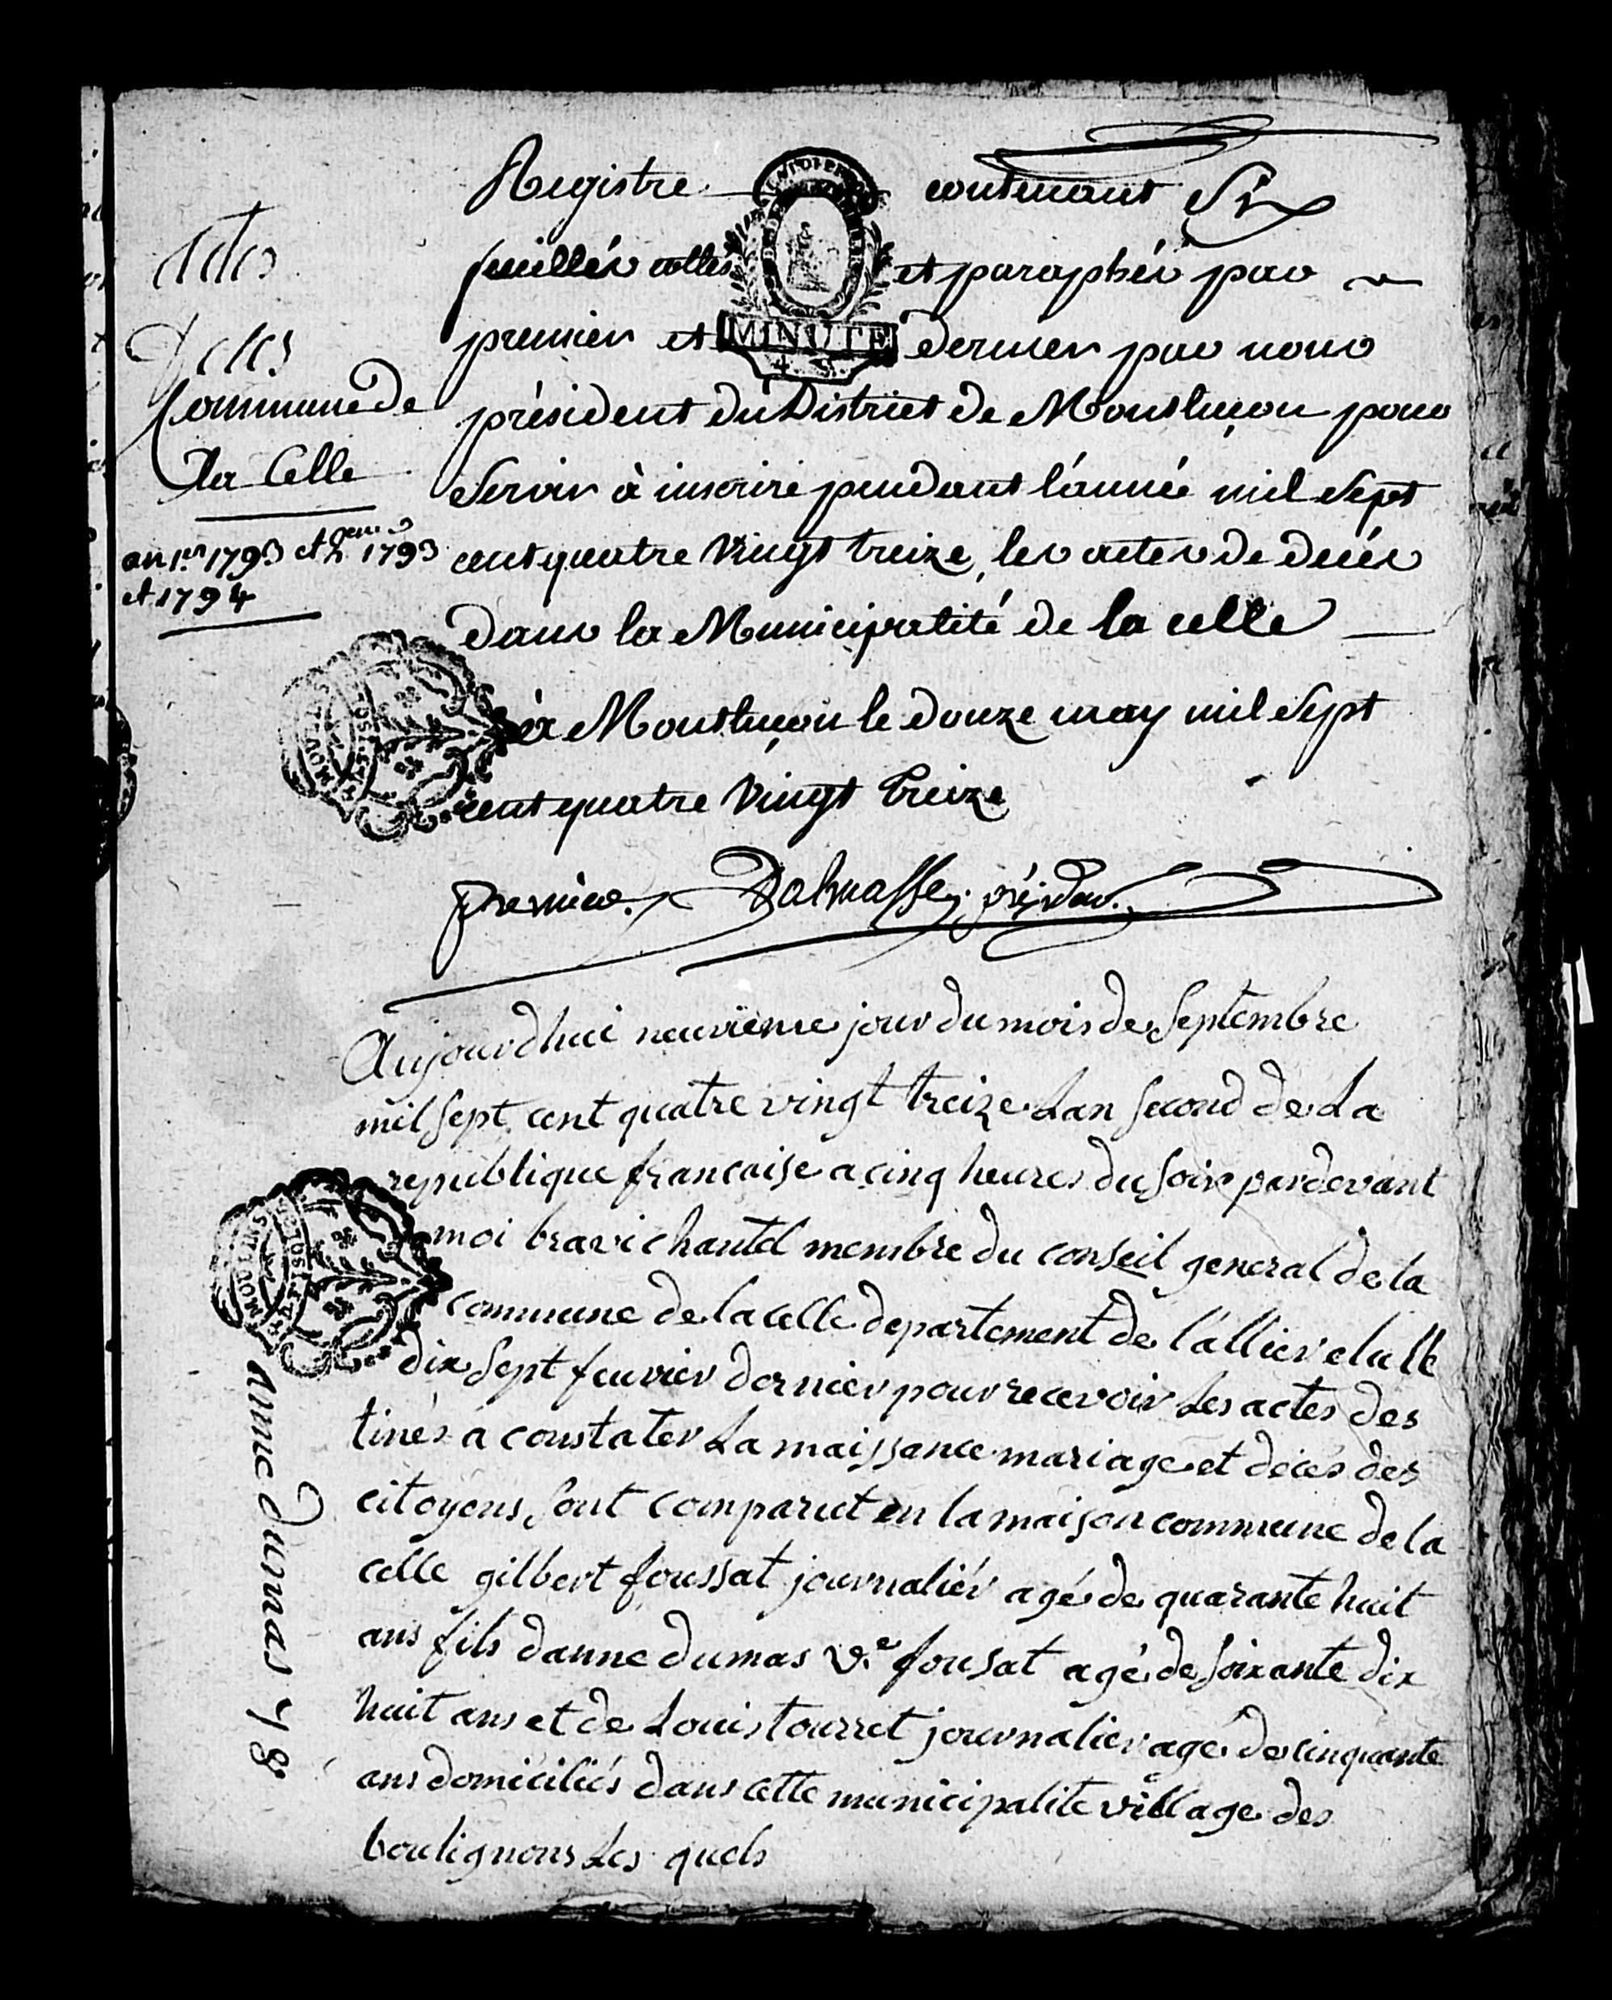 Actes
Decès
Commune de
la Celle
an 1er 1793 et 2eme 1793
et 1794
Registre contenant Six
feuillés cottés et paraphés par
premier et dernier par nous
MINUTE
4 S.
président du District de Montluçon pour
Servir à inscrire pendant l'année mil Sept
cent quatre Vingt treize, les actes de décés
dans la Municipalité de la celle
à Montluçon le douze may mil Sept
cent quatre Vingt treize
premiere. Dalmasse, présidt.
Aujourdhui neuvieme jour du mois de Septembre
mil Sept cent quatre vingt treize Lan Second de La
republique francaise a cinq heures du Soir pardevant
moi bravi chantel membre du conseil general de la
commune de la celle departement de l'allier elu le
dix Sept feuvrier dernier pour recevoir Les actes des
tinés a constater La naissance mariage et décès des
citoyens sont comparut en la maison commune de la
celle gilbert foussat journaliér agé de quarante huit
ans fils danne dumas ve fousat agé de soixante dix
huit ans et de Louis tourret journalier agé de cinquante
ans domiciliés dans cette municipalite village des
boulignons Les quels
anne dumas 78